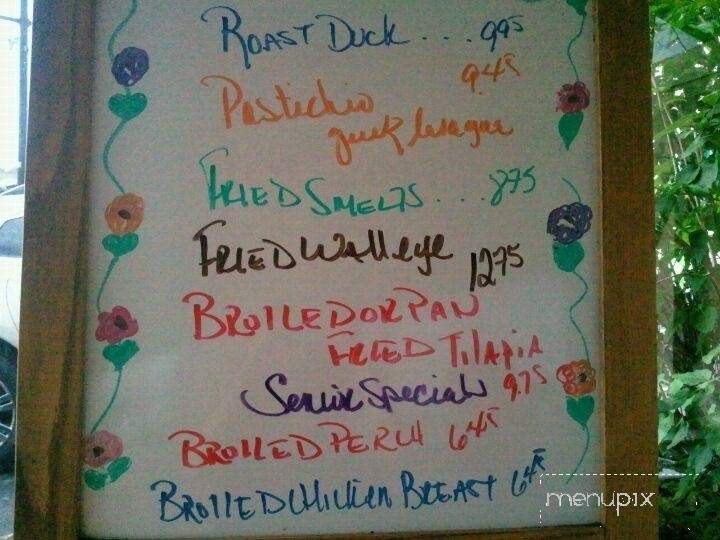 Roast Duck . . . 9.95
Pastichio 9.45
greek lasagne
Fried Smelts . . . 8.75
Fried Walleye 12.75
Broiled or Pan
Fried Tilapia
9.75
Senior Specials
Broiled Perch 6.45
Broiled Chicken Breast 6.45
menupix